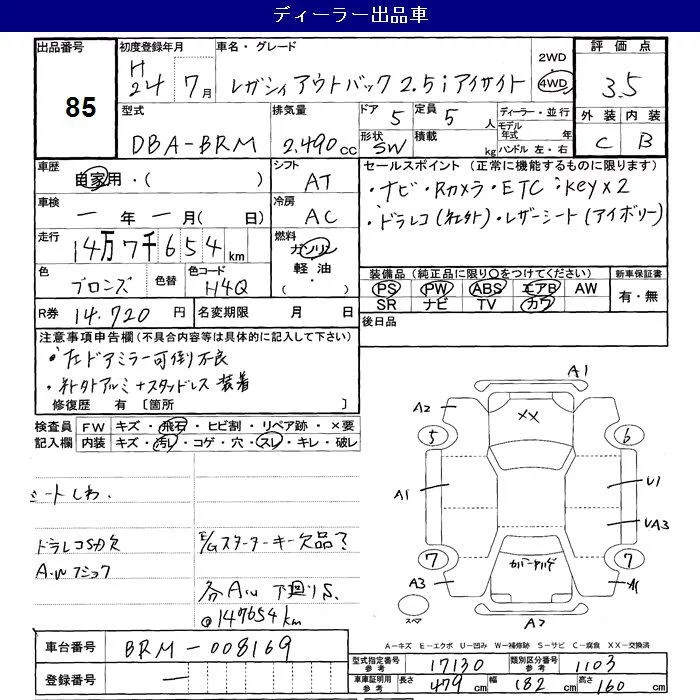 ディーラー出品車
出品番号 85
初度登録年月 H24 7月
車名・グレード レガシィ アウトバック 2.5i アイサイト
2WD 4WD
評価点 3.5
外装 内装
C B
型式 DBA-BRM
排気量 2.490cc
ドア 5
定員 5人
形状 SW
積載 kg
ディーラー・並行
モデル年式 年
ハンドル 左・右
車歴 自家用・( )
シフト AT
車検 一年一月(日)
冷房 AC
走行 14万7千654km
燃料 ガソリン 軽油・( )
色 ブロンズ
色替
色コード H4Q
R券 14.720円
名変期限 月 日
セールスポイント(正常に機能するものに限ります)
・ナビ・Rカメラ・ETC・Key×2
・ドラレコ(社外)・レザーシート(アイボリー)
装備品(純正品に限り○をつけてください)
PS PW ABS エアB AW
SR ナビ TV カワ
新車保証書
有・無
後日品
注意事項申告欄(不具合内容等は具体的に記入して下さい)
・左ドアミラー可倒不良
・社外アルミ+スタッドレス装着
修復歴 有〔箇所 〕
検査員記入欄
FW キズ・飛石・ヒビ割・リペア跡・×要
内装 キズ・汚レ・コゲ・穴・スレ・キレ・破レ
シートしわ.
ドラレコSD欠
E/Gスターターキー欠品?
各A/W 下廻りS.
@147654km
A1
A2
XX
5 6
A1 U1
UA3
7 7
A3
カバーヤケ
スペア
A2
A-キズ E-エクボ U-凹み W-補修跡 S-サビ C-腐食 XX-交換済
車台番号 BRM-008169
登録番号 一
型式指定番号 参考 17130
類別区分番号 参考 1103
車庫証明用 参考 長さ 479cm 幅 182cm 高さ 160cm